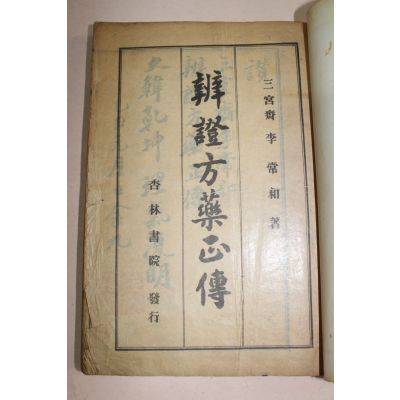 三宮齋 李常和 著
辨證方藥正傳
杏林書院 發行